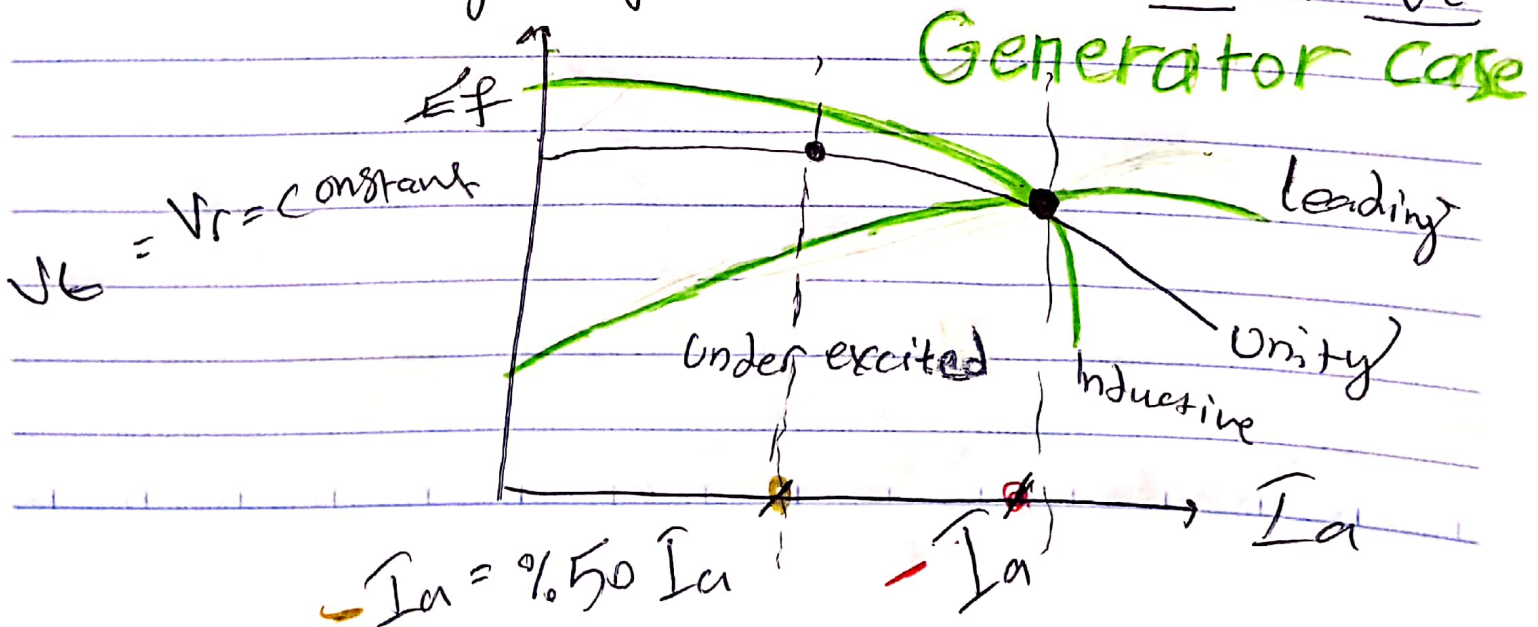 Generator Case
Ef
Vt = Vr = Constant
leading
Unity
Inductive
Under excited
Ia
Ia = %50 Ia
Ia